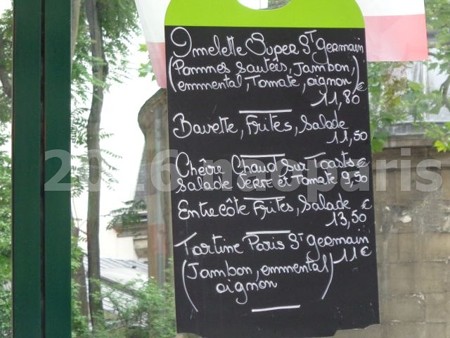 Omelette Super St Germain
(Pommes sautées, Jambon,
emmental, Tomate, oignon)
11,80 €
Bavette, Frites, Salade
11,50
Chèvre Chaud sur Toasts
Salade Verte et Tomate 9.50 €
Entrecôte Frites, Salade
13,50 €
Tartine Paris St Germain
(Jambon, emmental, 11€
oignon)